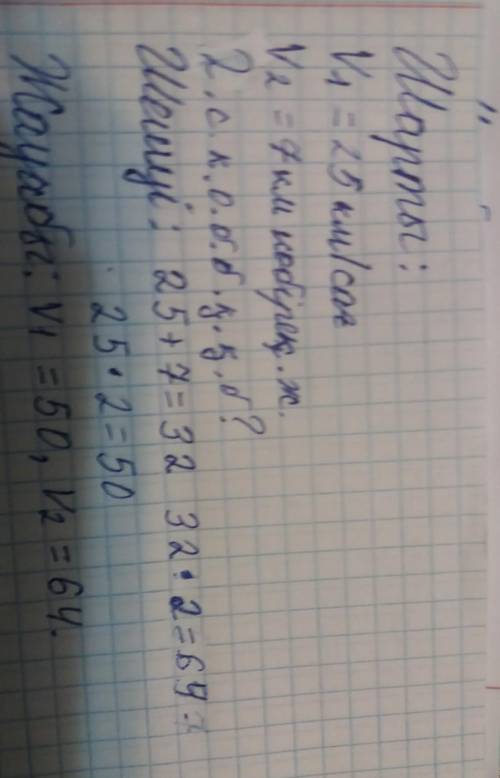 Шарты:
V1 = 25 км/сағ
V2 = 7 км көбірек. ж.
2.с.к.о.б.б.қ.қ.б?
Шешуі: 25+7=32 32·2=64
25·2=50
Жауабы: V1 = 50, V2 = 64.